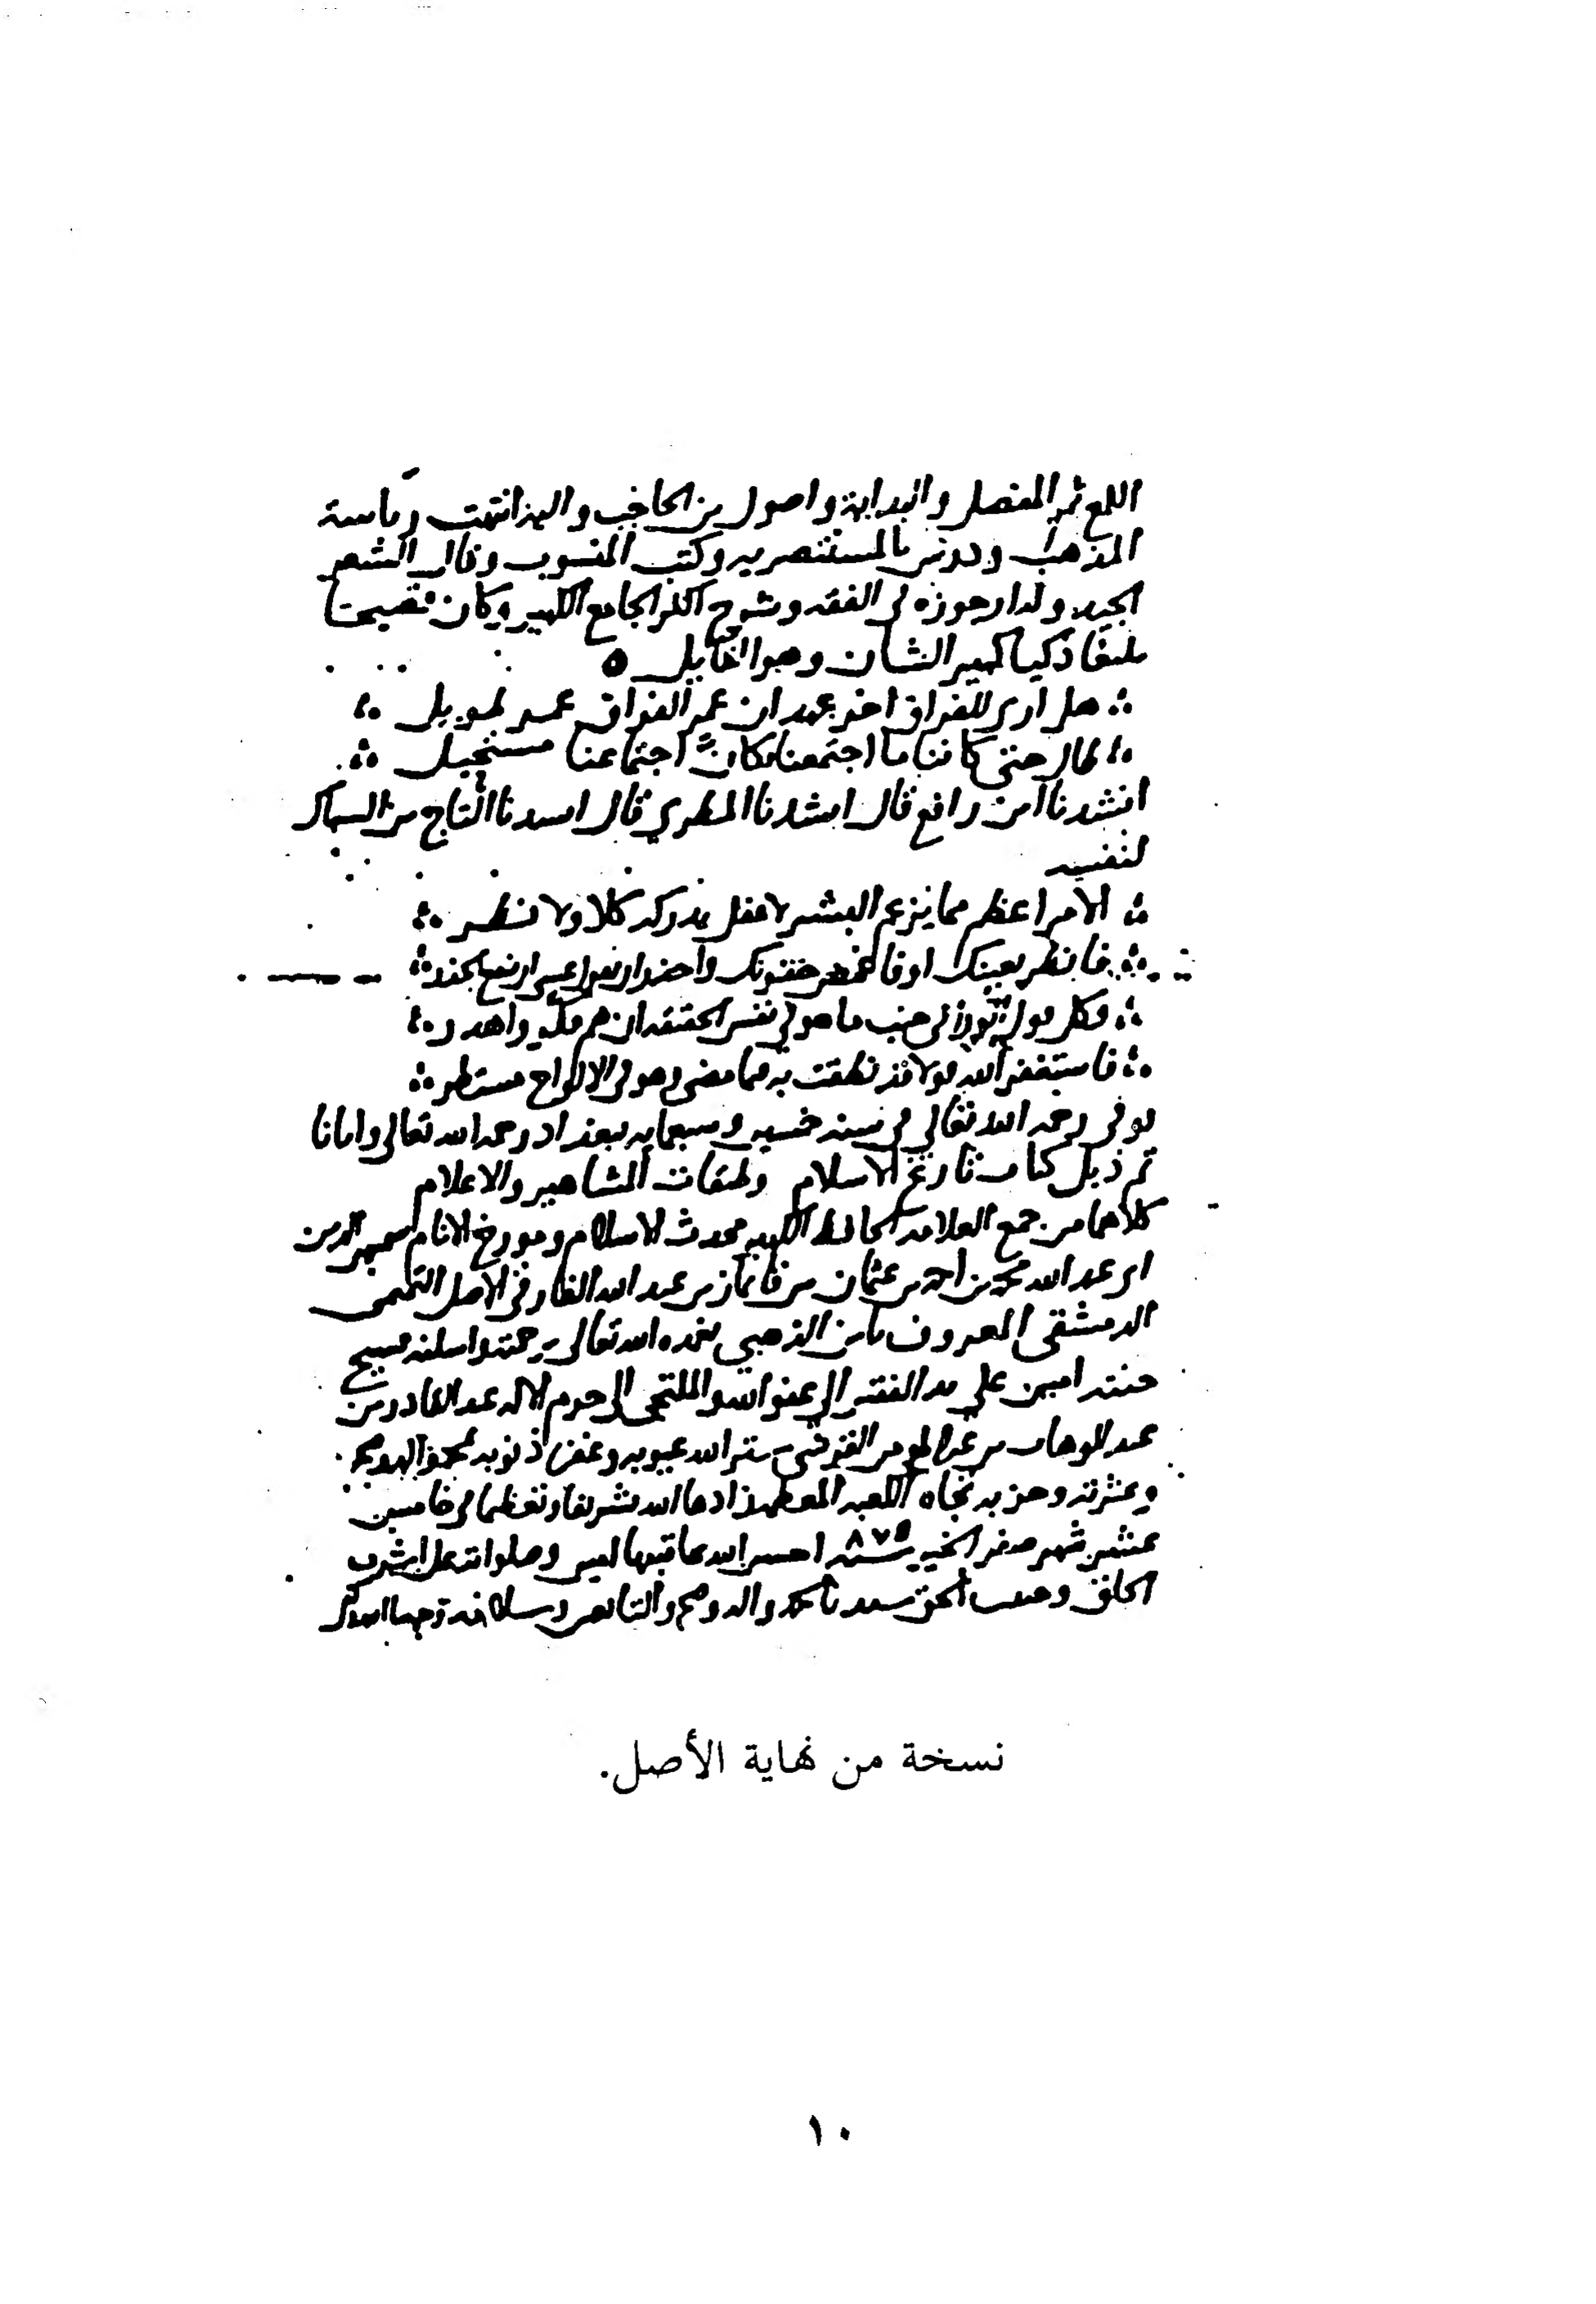 اللمع ثم المفصل والبداية واصول بن الحاجب واليه انتهت رياسة
المذهب ودرس بالمستنصرية وكتب المنسوب وقال الشعر
الجيد وله ارجوزه في الفقه وشرح اكثر الجامع الكبير وكان فصيحا
بليغا ذكيا كبير الشان وهو القايل
هل ارى للفراق اخر عهد ان عمر الفراق عمر طويل
طال حتى كاننا ما اجتمعنا فكان اجتماعنا مستحيل
انشدنا ابن رافع قال انشدنا المطري قال انشدنا التاج بن السباك
لنفسه
الامر اعظم مما يزعم البشر لا عقل يدركه كلا ولا نظر
فانظر بعينك او فاغمض جفونك واحذر ان تقول عسى ان ينفع الحذر
فكل قول الورى في جنب ما هو في نفس الحقيقة ان هم فكروا هدر
فاستغفر الله قولا قد نطقت به فيما مضى وهو في الالواح مستطر
توفي رحمه الله تعالى في سنة خمسين وسبعمايه ببغداد رحمه الله تعالى وايانا
تم ذيل كتاب تاريخ الاسلام وطبقات المشاهير والاعلام
كلاهما من جمع العلامة الحافظ الكبير محدث الاسلام ومورخ الانام شمس الدين
ابي عبد الله محمد بن احمد بن عثمان بن قايماز بن عبد الله الفارقي الاصل
الدمشقي المعروف بابن الذهبي تغمده الله تعالى برحمته واسكنه فسيح
جنته امين على يد الفقير الى عفو الله والملتجي الى حرم الاله عبد القادر بن
عبد الوهاب بن عبد المومن القرشي ستر الله عيوبه وغفر ذنوبه بمحمد واله وصحبه
وعترته وحزبه تجاه الكعبة المعظمة زادها الله تشريفا وتعظيما في خامس
عشر شهر صفر الخير سنة ٨٧٥ احسن الله عاقبتها امين وصلواته على اشرف
الخلق وحبيب الحق سيدنا محمد واله وصحبه والتابعين وسلامه
نسخة من نهاية الأصل.
١٠